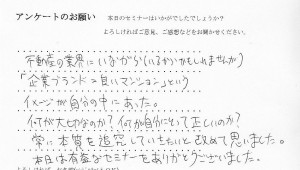 アンケートのお願い
本日のセミナーはいかがでしたでしょうか?
よろしければご意見、ご感想などをお聞かせください。
不動産の業界にいながら(いるからかもしれませんが)
「企業ブランド=良いマンション」という
イメージが自分の中にあった。
何が大切なのか?何が自分にとって正しいのか?
常に本質を追究していきたいと改めて思いました。
本日は有益なセミナーをありがとうございました。